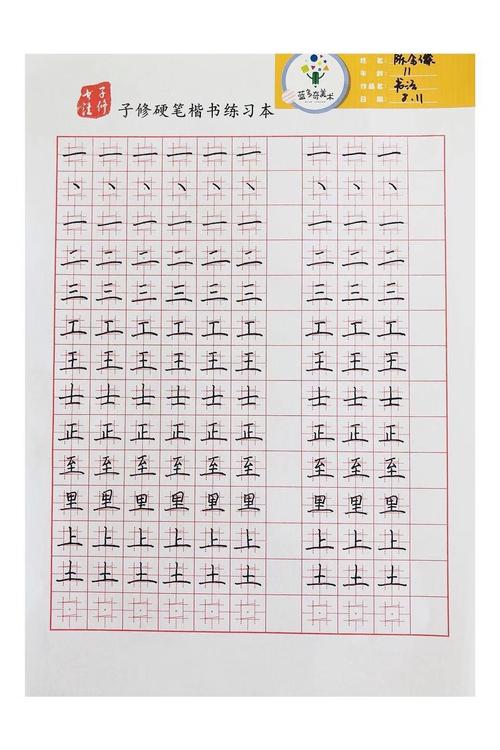 子修
书法
子修硬笔楷书练习本
蓝多奇美术
姓名:
年龄: 11
作品名: 书法
日期: 2.11
一 一 一 一 一 一 一 一 一
丶 丶 丶 丶 丶 丶 丶 丶 丶
一 一 一 一 一 一 一 一 一
二 二 二 二 二 二 二 二 二
三 三 三 三 三 三 三 三 三
工 工 工 工 工 工 工 工 工
王 王 王 王 王 王 王 王 王
士 士 士 士 士 士 士 士 士
正 正 正 正 正 正 正 正 正
至 至 至 至 至 至 至 至 至
里 里 里 里 里 里 里 里 里
上 上 上 上 上 上 上 上 上
土 土 土 土 土 土 土 土 土